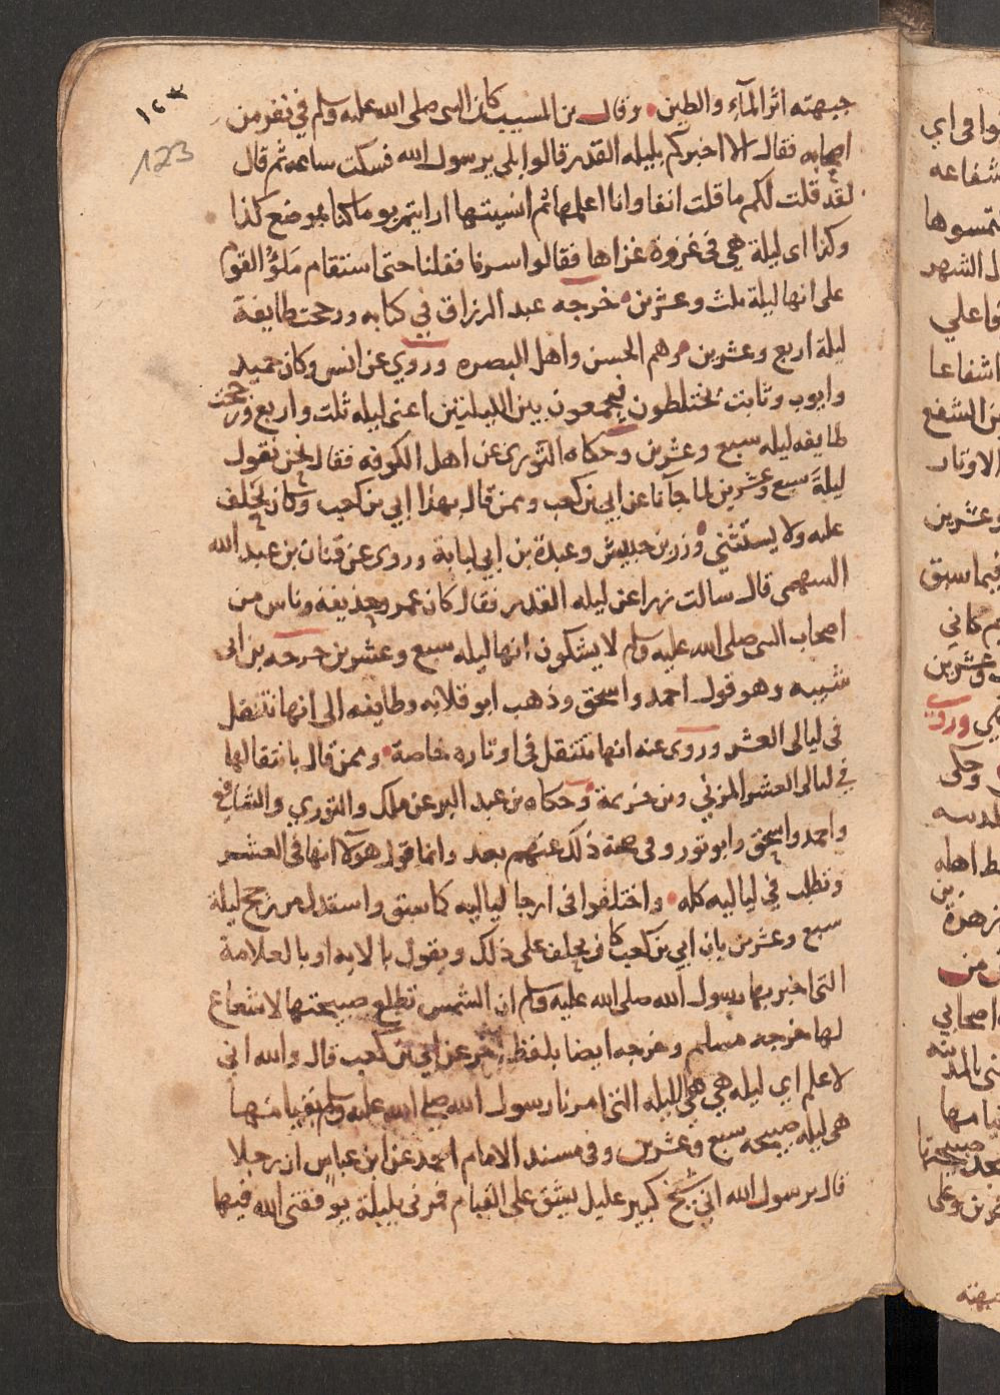 ١٢٣
123
جبهته اثر المآء والطين • وقال بن المسيب كان النبى صلى الله عليه وسلم في نفر من
اصحابه فقال الا اخبركم بليله القدر قالوا بلي يرسول الله فسكت ساعه ثم قال
لقد قلت لكم ما قلت انفا وانا اعلمها ثم انسيتها ارايتم يوما كنا بموضع كذا
وكذا اى ليلة هي في غزوة غزاها فقالوا سرنا فقلنا حتى استقام ملؤ القوم
على انها ليلة ثلث وعشرين • خرجه عبد الرزاق في كتابه ورجحت طايفة
ليلة اربع وعشرين • وهم الحسن واهل البصره وروي عن انس وكان حميد
وايوب وثابت يختلطون فيجمعون بين الليلتين اعنى ليله ثلث واربع ورجحت
طايفه ليله سبع وعشرين وحكاه الثورى عن اهل الكوفه فقال نحن نقول
ليلة سبع وعشرين لما جآنا عن ابي بن كعب وممن قال بهذا ابي بن كعب وكان يحلف
عليه ولا يستثنى • وزر بن حبيش وعبدة بن ابي لبابة وروى عن قنان بن عبد الله
السهمى قال سالت زرا عن ليله القدر فقال كان عمر وحذيفه وناس من
اصحاب النبى صلى الله عليه وسلم لا يشكون انها ليله سبع وعشرين خرجه بن ابى
شيبه وهو قول احمد واسحق وذهب ابو قلابه وطايفه الى انها تنتقل
في ليالى العشر وروى عنه انها تنتقل في اوتاره خاصة • وممن قال بانتقالها
في ليالى العشر المزني وبن خزيمة • وحكاه بن عبد البر عن ملك والثوري والشافعي
واحمد واسحق وابو ثور وفي صحة ذلك عنهم بعد وانما قول هولآ انها في العشر
وتطلب في لياليه كله • واختلفوا فى ارجا لياليه كما سبق واستدل من رجح ليلة
سبع وعشرين بان ابي بن كعب كان يحلف على ذلك ويقول بالايه او بالعلامة
التى اخبر بها رسول الله صلى الله عليه وسلم ان الشمس تطلع صبيحتها لا شعاع
لها خرجه مسلم وخرجه ايضا بلفظ اخر عن ابي بن كعب قال والله اني
لا علم اي ليله هي هي الليله التى امرنا رسول الله صلي الله عليه وسلم بقيامها
هى ليله صبيحه سبع وعشرين وفى مسند الامام احمد عن ابن عباس ان رجلا
قال يرسول الله اني شيخ كبير عليل يشق على القيام فمرنى بليلة يوفقنى الله فيها